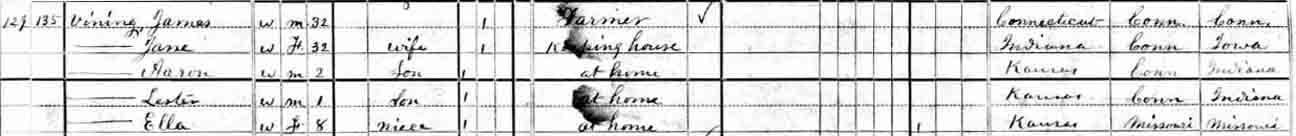 129 135 Vining, James w m 32 1 Farmer ✓ Connecticut Conn. Conn.
—— Jane w F 32 wife 1 Keeping house Indiana Conn Iowa
—— Aaron w m 2 Son 1 at home Kansas Conn Indiana
—— Lester w m 1 Son 1 at home Kansas Conn Indiana
—— Ella w F 8 niece 1 at home 1 Kansas Missouri Missouri